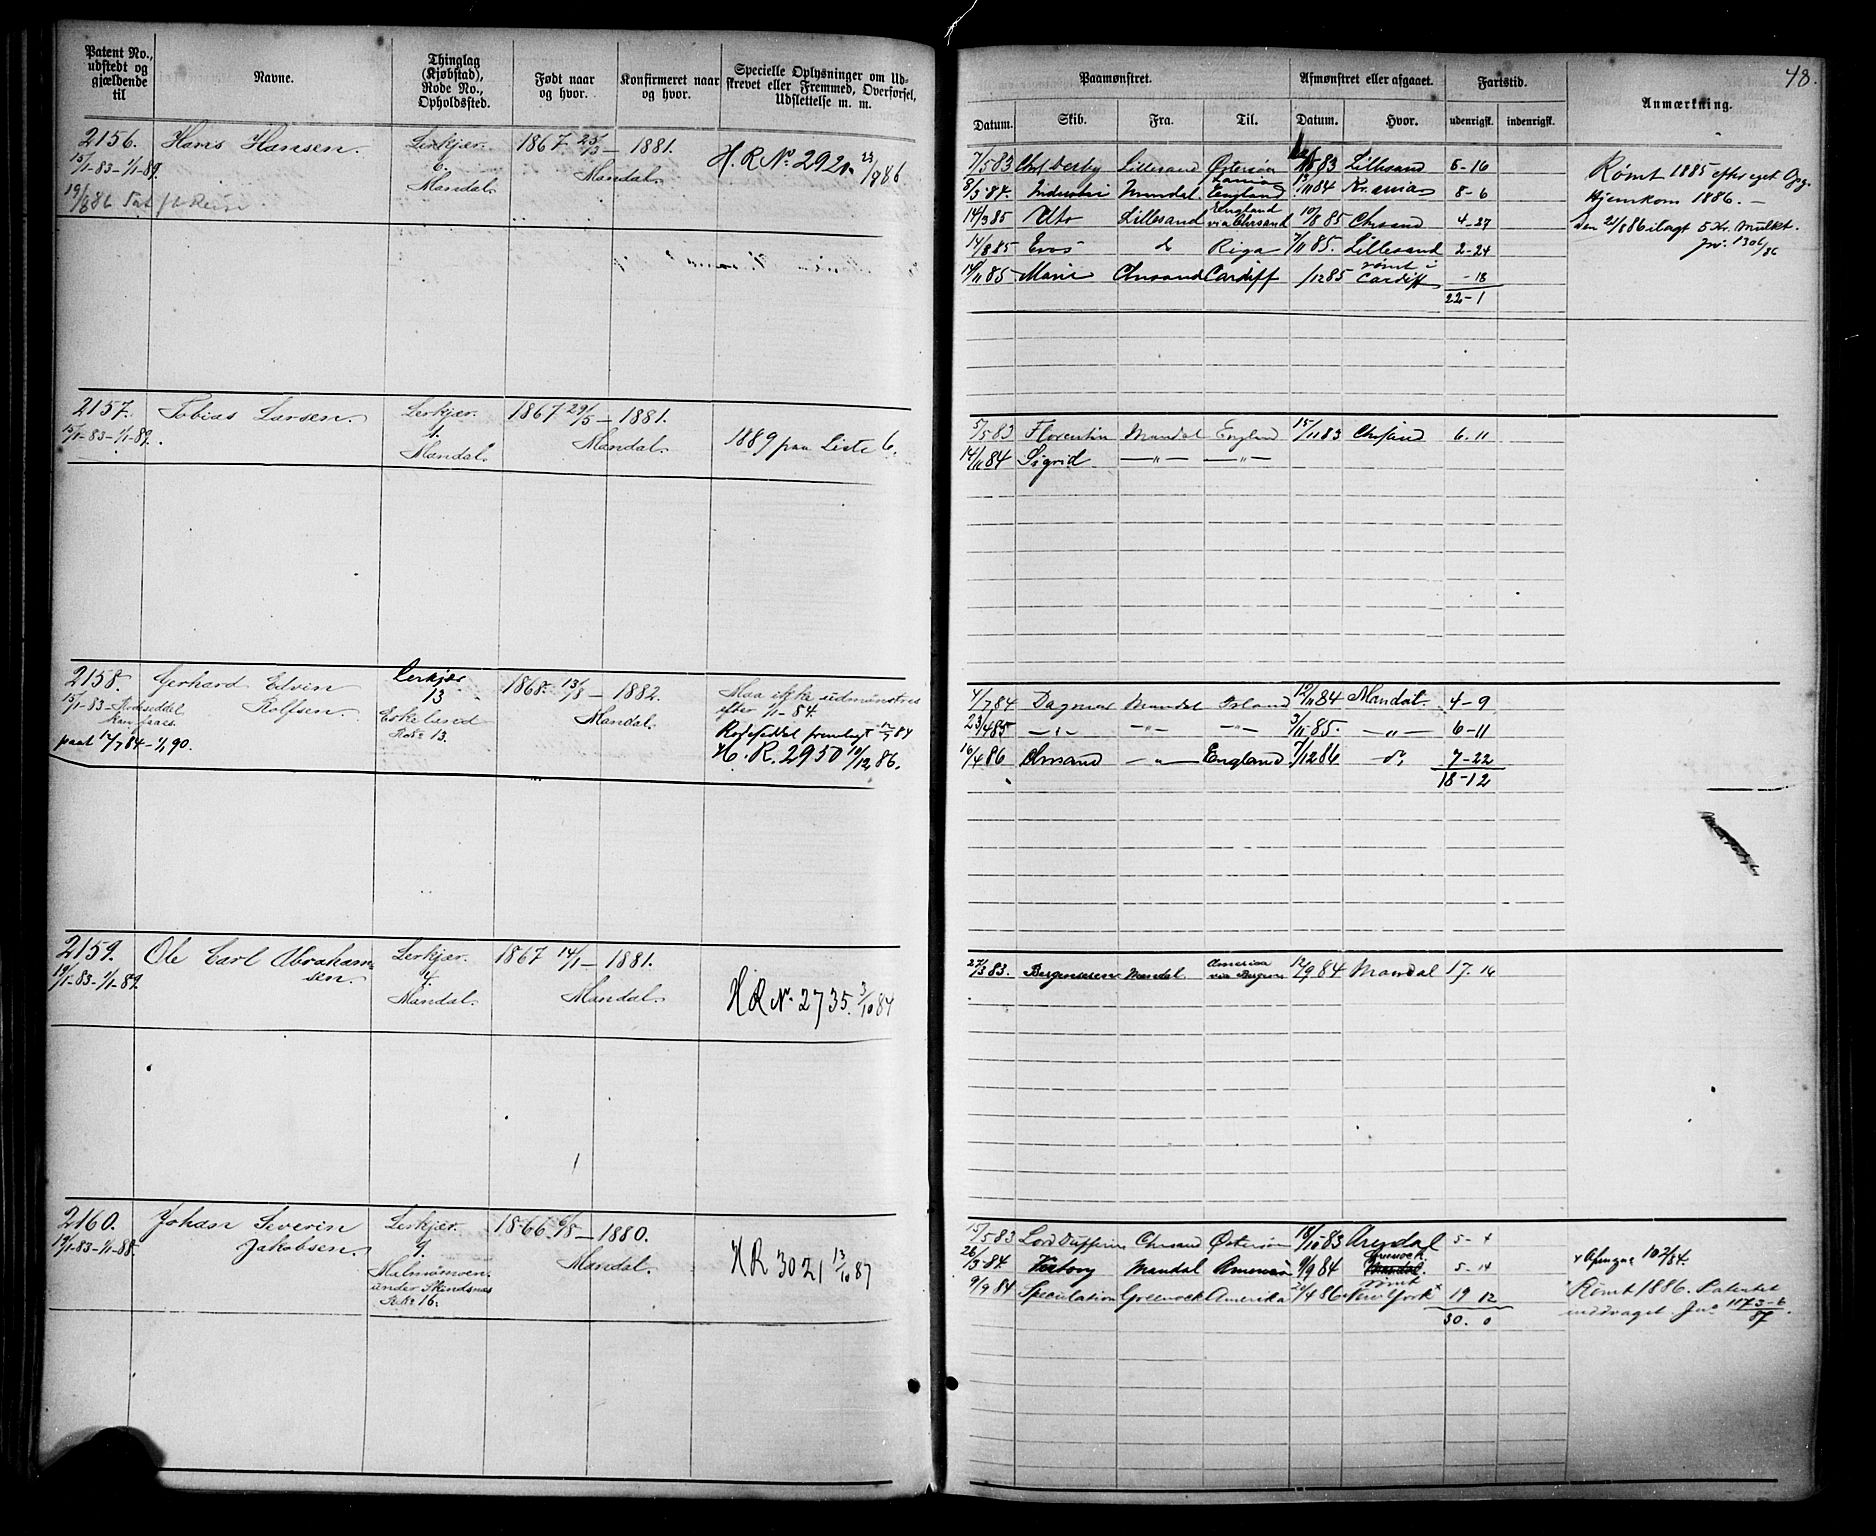 Patent No., udstedt og gjældende til
Navne.
Thinglag (Kjøbstad), Rode No., Opholdssted.
Født naar og hvor.
Konfirmeret naar og hvor.
Specielle Oplysninger om Udskrevet eller Fremmed, Overførsel, Udslettelse m. m.
2156.
15/1-83-1/1-89.
19/8 86
Hans Hansen.
Lerkjær.
6.
Mandal.
1867 25/3 — 1881.
Mandal.
H. R No. 2920 23/8 86
2157.
15/1-83-1/1-89.
Tobias Larsen.
Lerkjær.
4.
Mandal.
1867 29/5 — 1881.
Mandal.
1889 paa Liste 6.
2158.
15/1-83- Rodeseddel
paat 12/7 84-1/1 90.
Gerhard Edvin
Rolfsen.
Lerkjær
13
Eskeland
Rode 13.
1868. 13/8 — 1882.
Mandal.
Maa ikke udmønstres
efter 1/1-84.
Rodeseddel fremlagt 12/7 84
H. R. 2950 10/12 86.
2159.
19/1-83-1/1-89.
Ole Carl Abraham=
sen.
Lerkjær.
4.
Mandal.
1867 14/1 — 1881.
Mandal.
H R No. 2735. 3/10 84
2160.
19/1-83-1/1-88.
Johan Severin
Jakobsen.
Lerkjær.
9.
Malmømoen
under Skindsnæs
Rode 16.
1866 6/8 — 1880.
Mandal.
H R 3021 13/10 87
48.
Paamønstret.
Afmønstret eller afgaaet.
Fartstid.
Anmærkning.
Datum.
Skib.
Fra.
Til.
Datum.
Hvor.
udenrigsk.
indenrigsk.
7/5 83 Chs Derby Lillesand Østersøen 83 Lillesand 5-16
8/3 84. Mandal England 14/11 84 Kr.ania 8-6
14/3 85 Uto Lillesand England via Chrsand 10/8 85 Chrsand 4-27
14/8 85 Eros do Riga 7/11 85. Lillesand 2-24
14/11 85 Marie Chrsand Cardiff /12 85 rømt i Cardiff -18
22-1
Rømt 1885 efter eget Opg.
Hjemkom 1886. —
Den 23/8 86 ilagt 5 Kr. Mulkt.
Jno. 1306/86
5/5 83 Florentin Mandal England 15/11 83 Chrsand 6.11
14/11 84 Sigrid —〃— —〃—
4/7 84 Dagmar Mandal Irland 12/11 84 Mandal. 4-9
23/4 85 —〃— —〃— —〃— 3/11 85. —〃— 6-11
16/4 86 Chrsand —〃— England 7/12 86 do 7-22
18-12
27/3 83. Bergenseren Mandal America via Bergen 12/9 84 Mandal 17.16
15/5 83 Lord Dufferin Chrsand Østersøen 18/10 83 Arendal 5-4
26/3 84. Mandal 9/9 84 Greenock 5-14
9/9 84 Speculation Greenock Amerika 21/4 86 rømt New York x 19 12
30. 0
x Afengage 102/84.
x Rømt 1886. Patentet
inddraget Jno 1173-6/87.